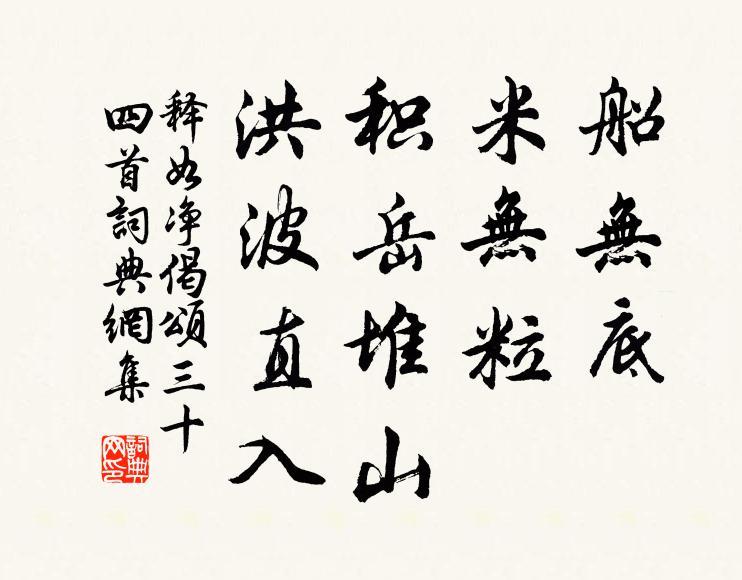 船無底
米無粒
积岳堆山
洪波直入
释如净偈頌三十
四首詞典網集
詞典网印